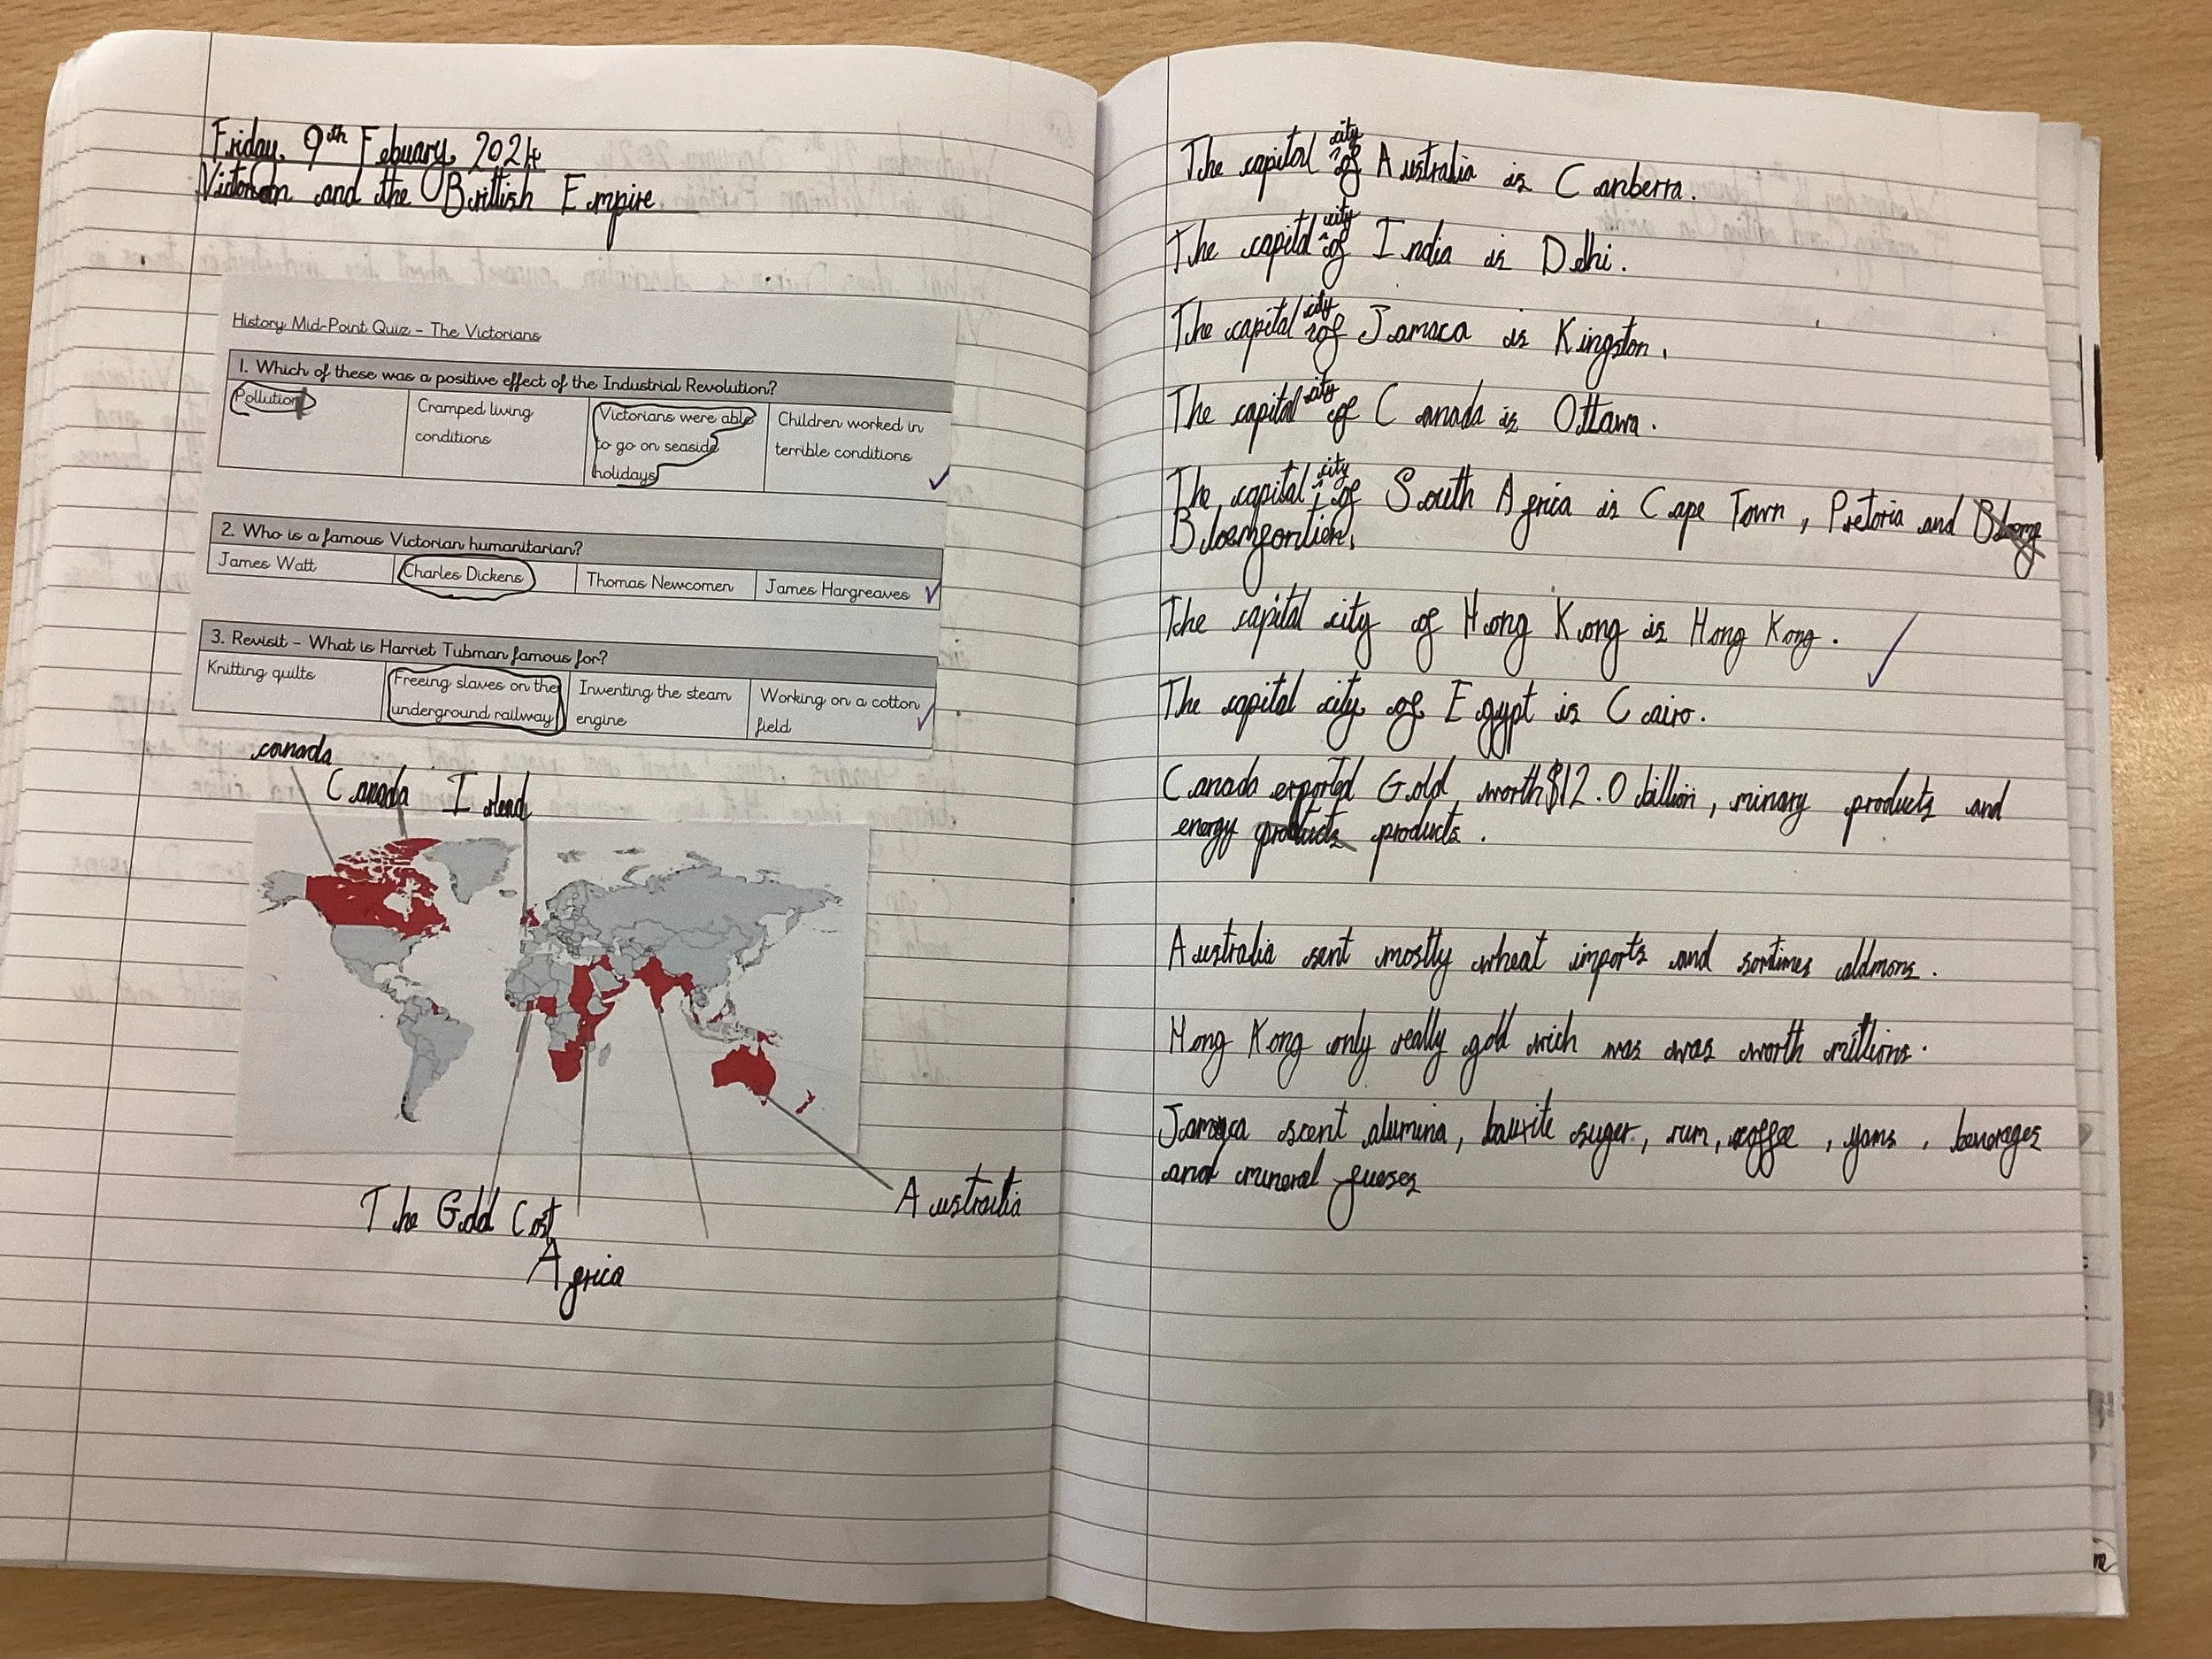 Friday, 9th Febuary, 2024
Victorian and the Brittish Empire
History Mid-Point Quiz - The Victorians
1. Which of these was a positive effect of the Industrial Revolution?
Pollution
Cramped living
conditions
Victorians were able
to go on seaside
holidays
Children worked in
terrible conditions
2. Who is a famous Victorian humanitarian?
James Watt
Charles Dickens
Thomas Newcomen
James Hargreaves
3. Revisit - What is Harriet Tubman famous for?
Knitting quilts
Freeing slaves on the
underground railway
Inventing the steam
engine
Working on a cotton
field
canada
Canada Island
The Gold Cost
Africa
Australia
The capital city of Australia is Canberra.
The capital city of India is Delhi.
The capital city of Jamaca is Kingston.
The capital city of Canada is Ottawa.
The capital city of South Africa is Cape Town, Pretoria and
Bloemfontien.
The capital city of Hong Kong is Hong Kong.
The capital city of Egypt is Cairo.
Canada exported Gold worth $12.0 billion, minary products and
energy products products.
Australia sent mostly wheat imports and somtimes aldmons.
Hong Kong only really gold wich was was worth millions.
Jamaca scent alumina, bauxite suger, rum, coffee, yams, beverages
and mineral